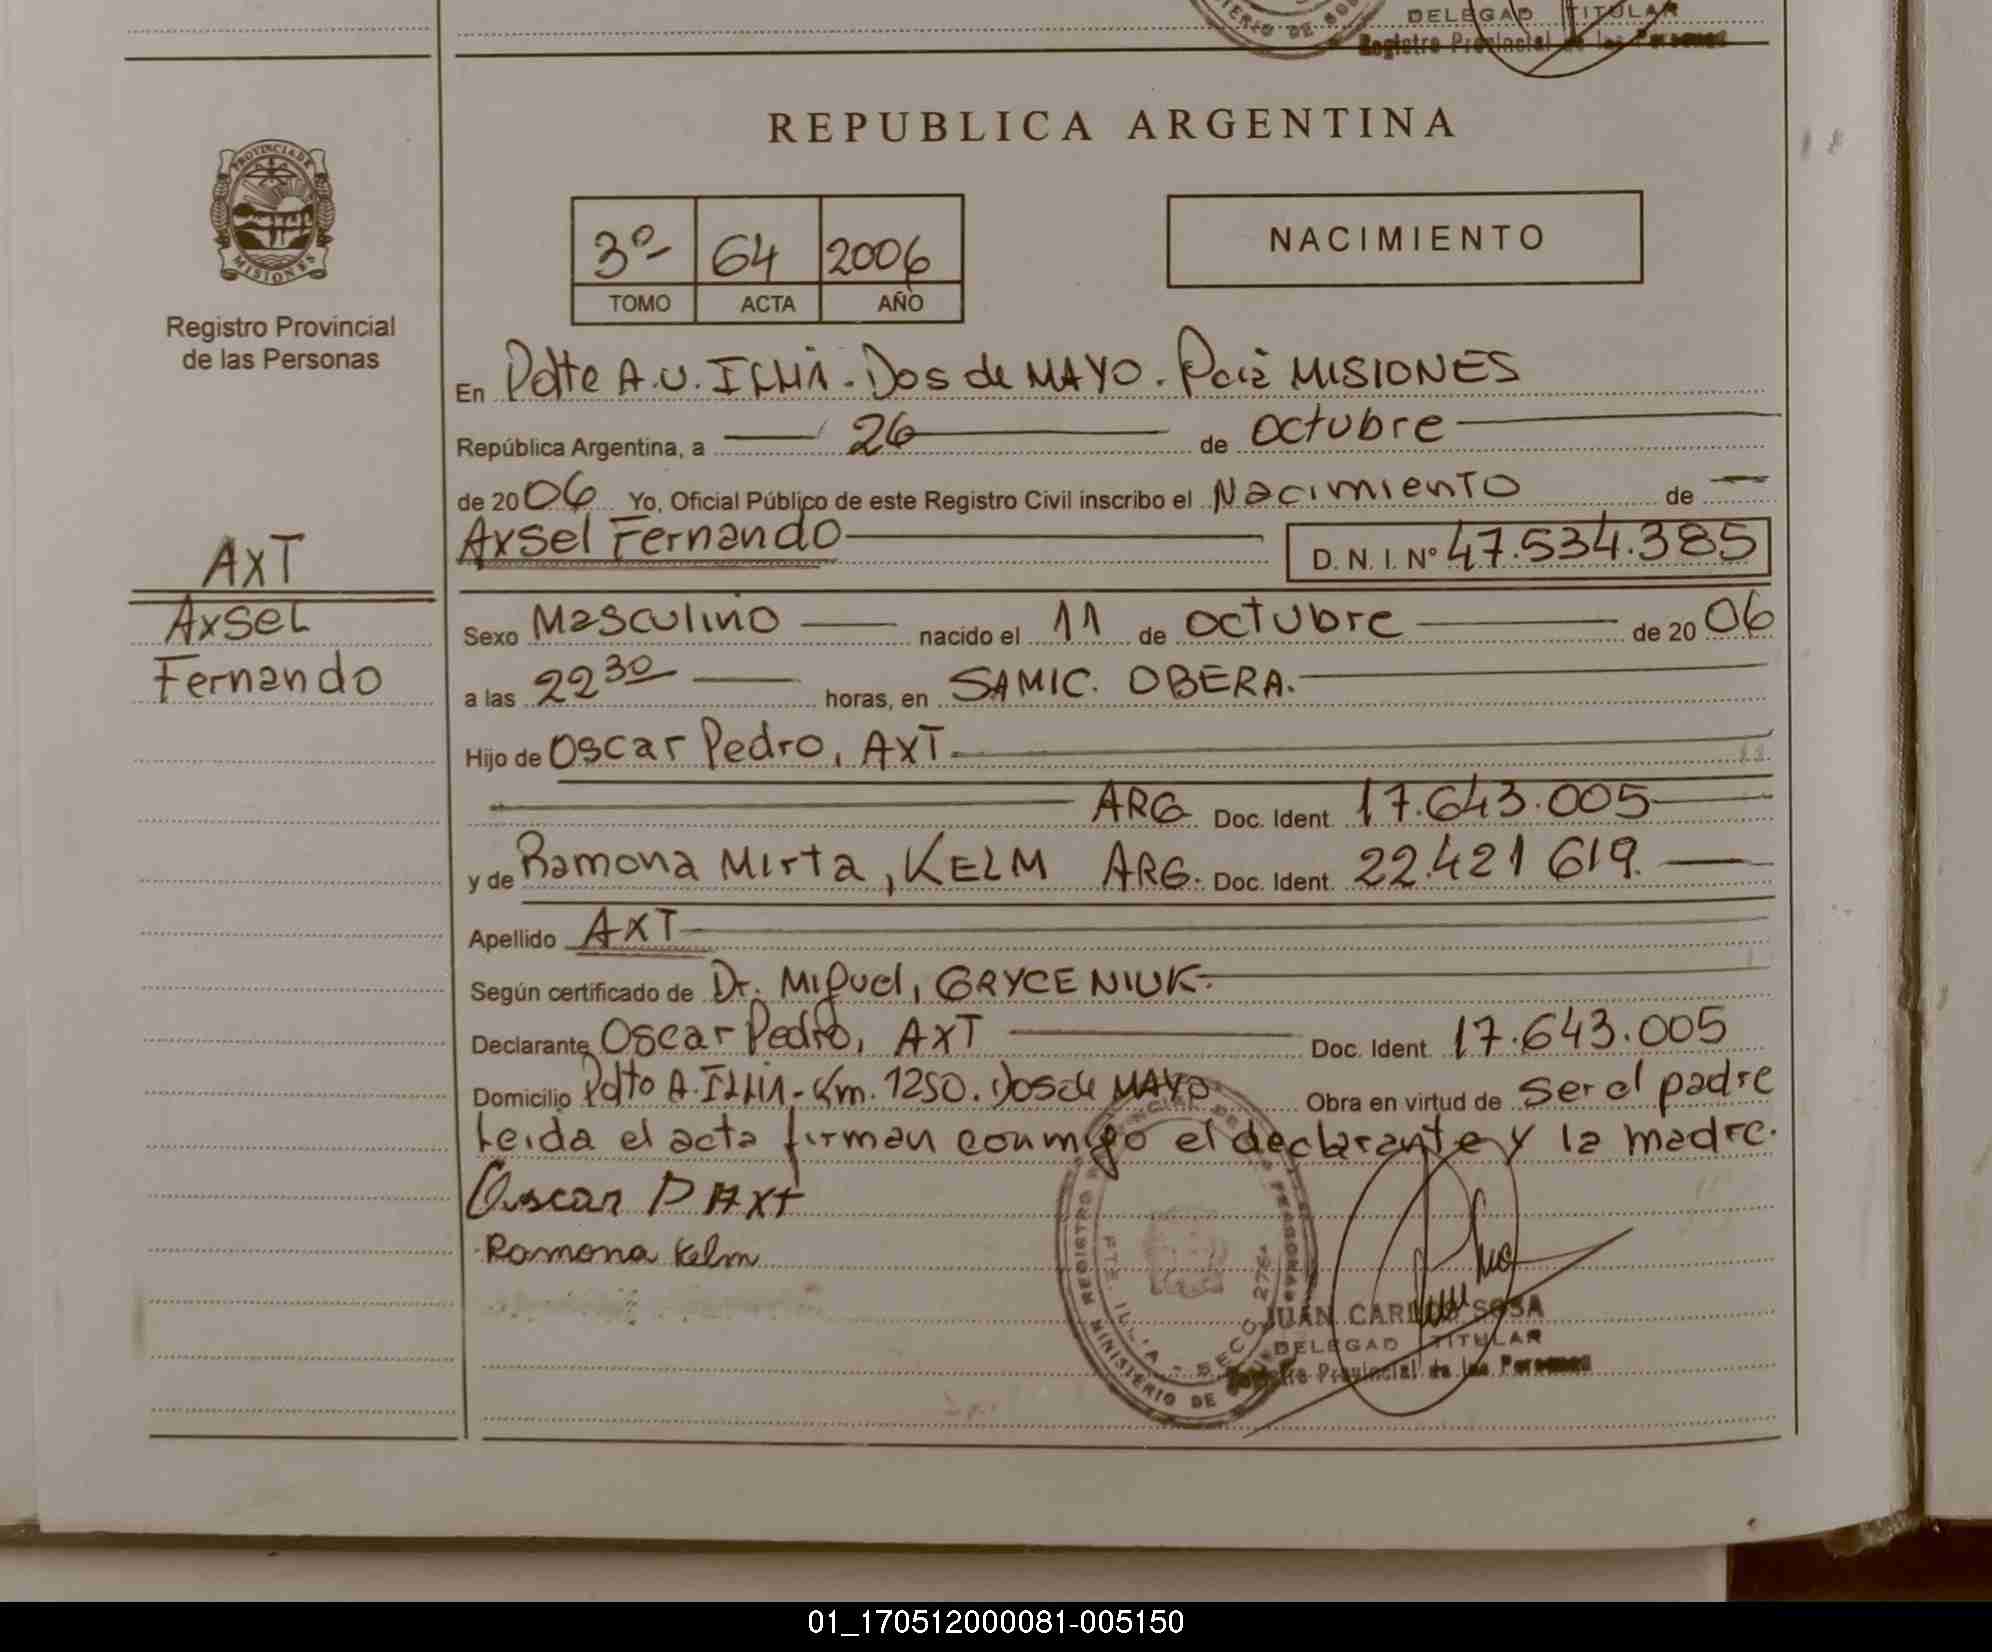 DELEGAD TITULAR
Registro Provincial de las Personas
REPUBLICA ARGENTINA
PROVINCIA DE
MISIONES
Registro Provincial
de las Personas
3º 64 2006
TOMO ACTA AÑO
NACIMIENTO
En Pdte A.U. ILLIA. Dos de MAYO. Pcia MISIONES
República Argentina, a 26 de octubre
de 2006 Yo, Oficial Público de este Registro Civil inscribo el Nacimiento de
Axsel Fernando D. N. I. Nº 47.534.385
AXT
Axsel
Fernando
Sexo Masculino nacido el 11 de octubre de 2006
a las 22 30 horas, en SAMIC. OBERA.
Hijo de Oscar Pedro, AXT
ARG Doc. Ident. 17.643.005
y de Ramona Mirta, KELM ARG. Doc. Ident. 22.421 619.
Apellido AXT
Según certificado de Dr. Miguel, GRYCENIUK.
Declarante Oscar Pedro, AXT Doc. Ident. 17.643.005
Domicilio Pdte A. ILLIA. Km. 1250. Dos de MAYO Obra en virtud de ser el padre
Leida el acta firman conmigo el declarante y la madre.
Oscar P Axt
Ramona Kelm
JUAN CARLOS SOSA
DELEGAD TITULAR
Registro Provincial de las Personas
MINISTERIO DE
01_170512000081-005150